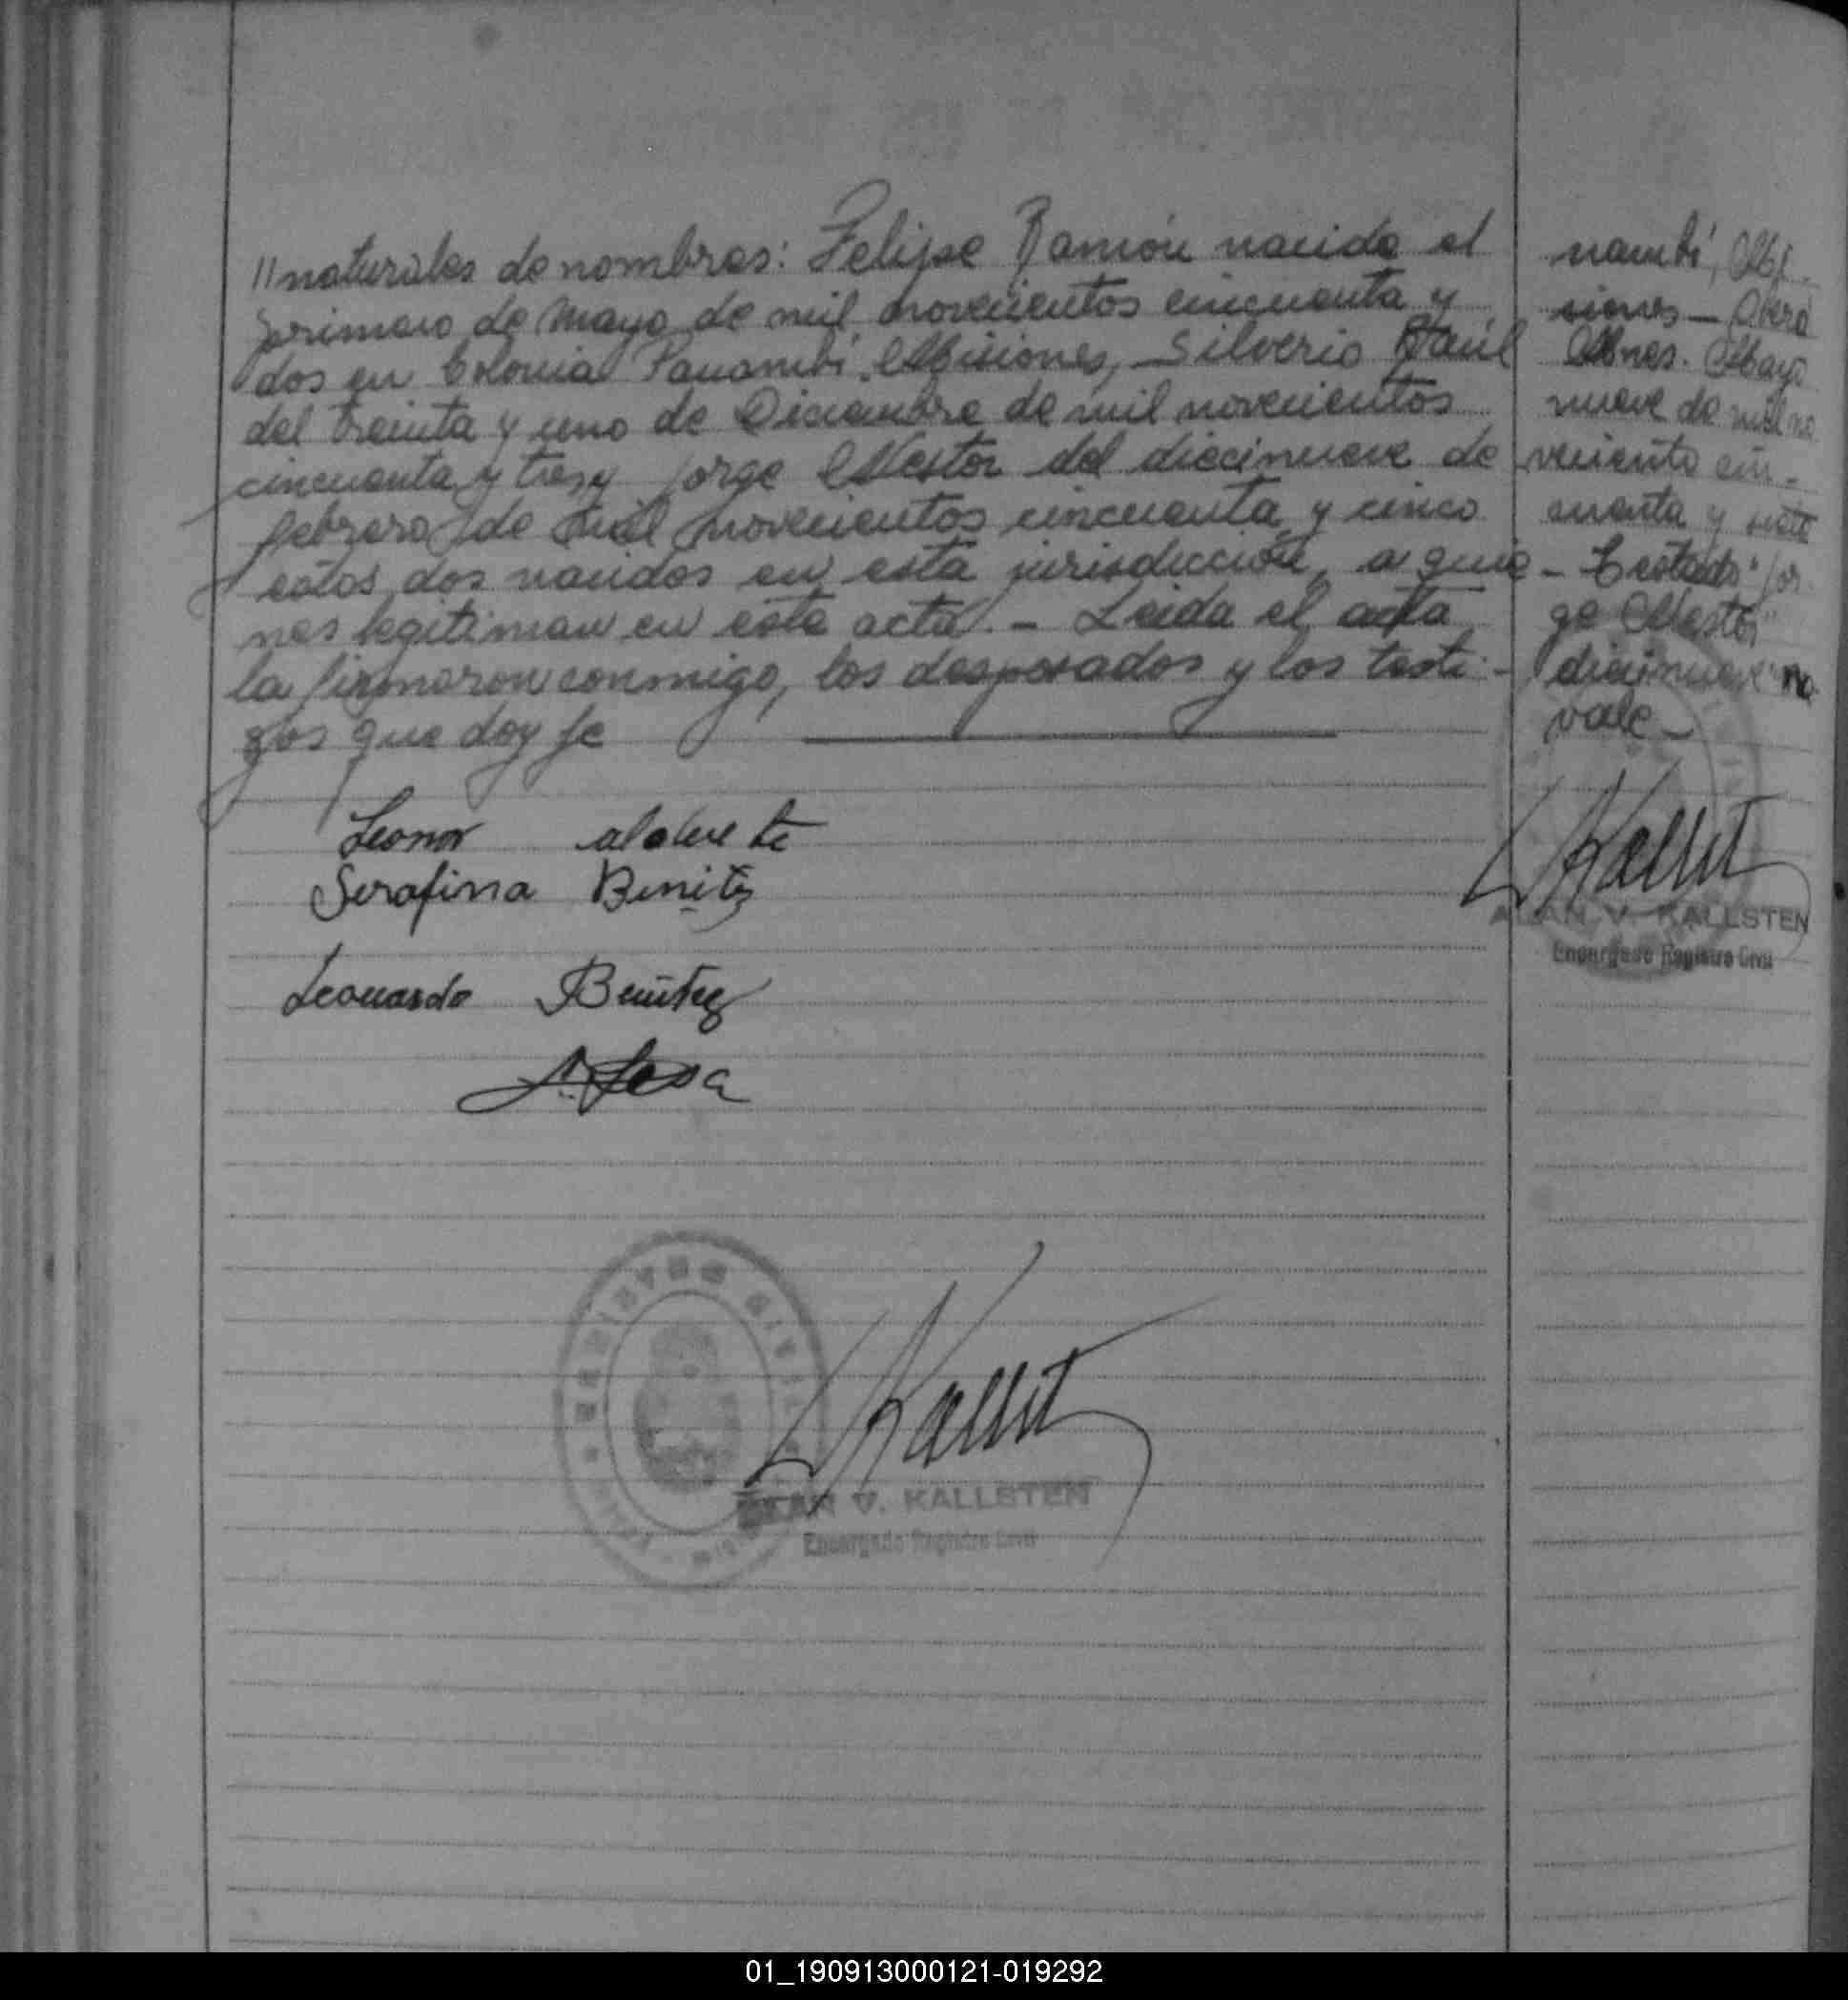 //naturales de nombres: Felipe Ramón nacido el
primero de Mayo de mil novecientos cincuenta y
dos en Colonia Panambí Misiones, Silverio Raúl
del treinta y uno de Diciembre de mil novecientos
cincuenta y tres y Jorge Nestor del diecinueve de
febrero de mil novecientos cincuenta y cinco
estos dos nacidos en esta jurisdicción, a quie-
nes legitiman en esta acta.- Leida el acta
la firmaron conmigo, los desposados y los testi-
gos que doy fe
Leonor
Serafina Benitez
Leonardo Benitez
Sosa
REGISTRO CIVIL
Kallst
V. KALLSTEN
Encargado Registro Civil
nambí, Mi-
siones - Oberá
Mnes. Mayo
nueve de mil no
veciento cin-
cuenta y siete
- Testado "Jor-
ge Nestor"
diecinueve "no
vale -
Kallst
ALAN V. KALLSTEN
Encargado Registro Civil
01_190913000121-019292